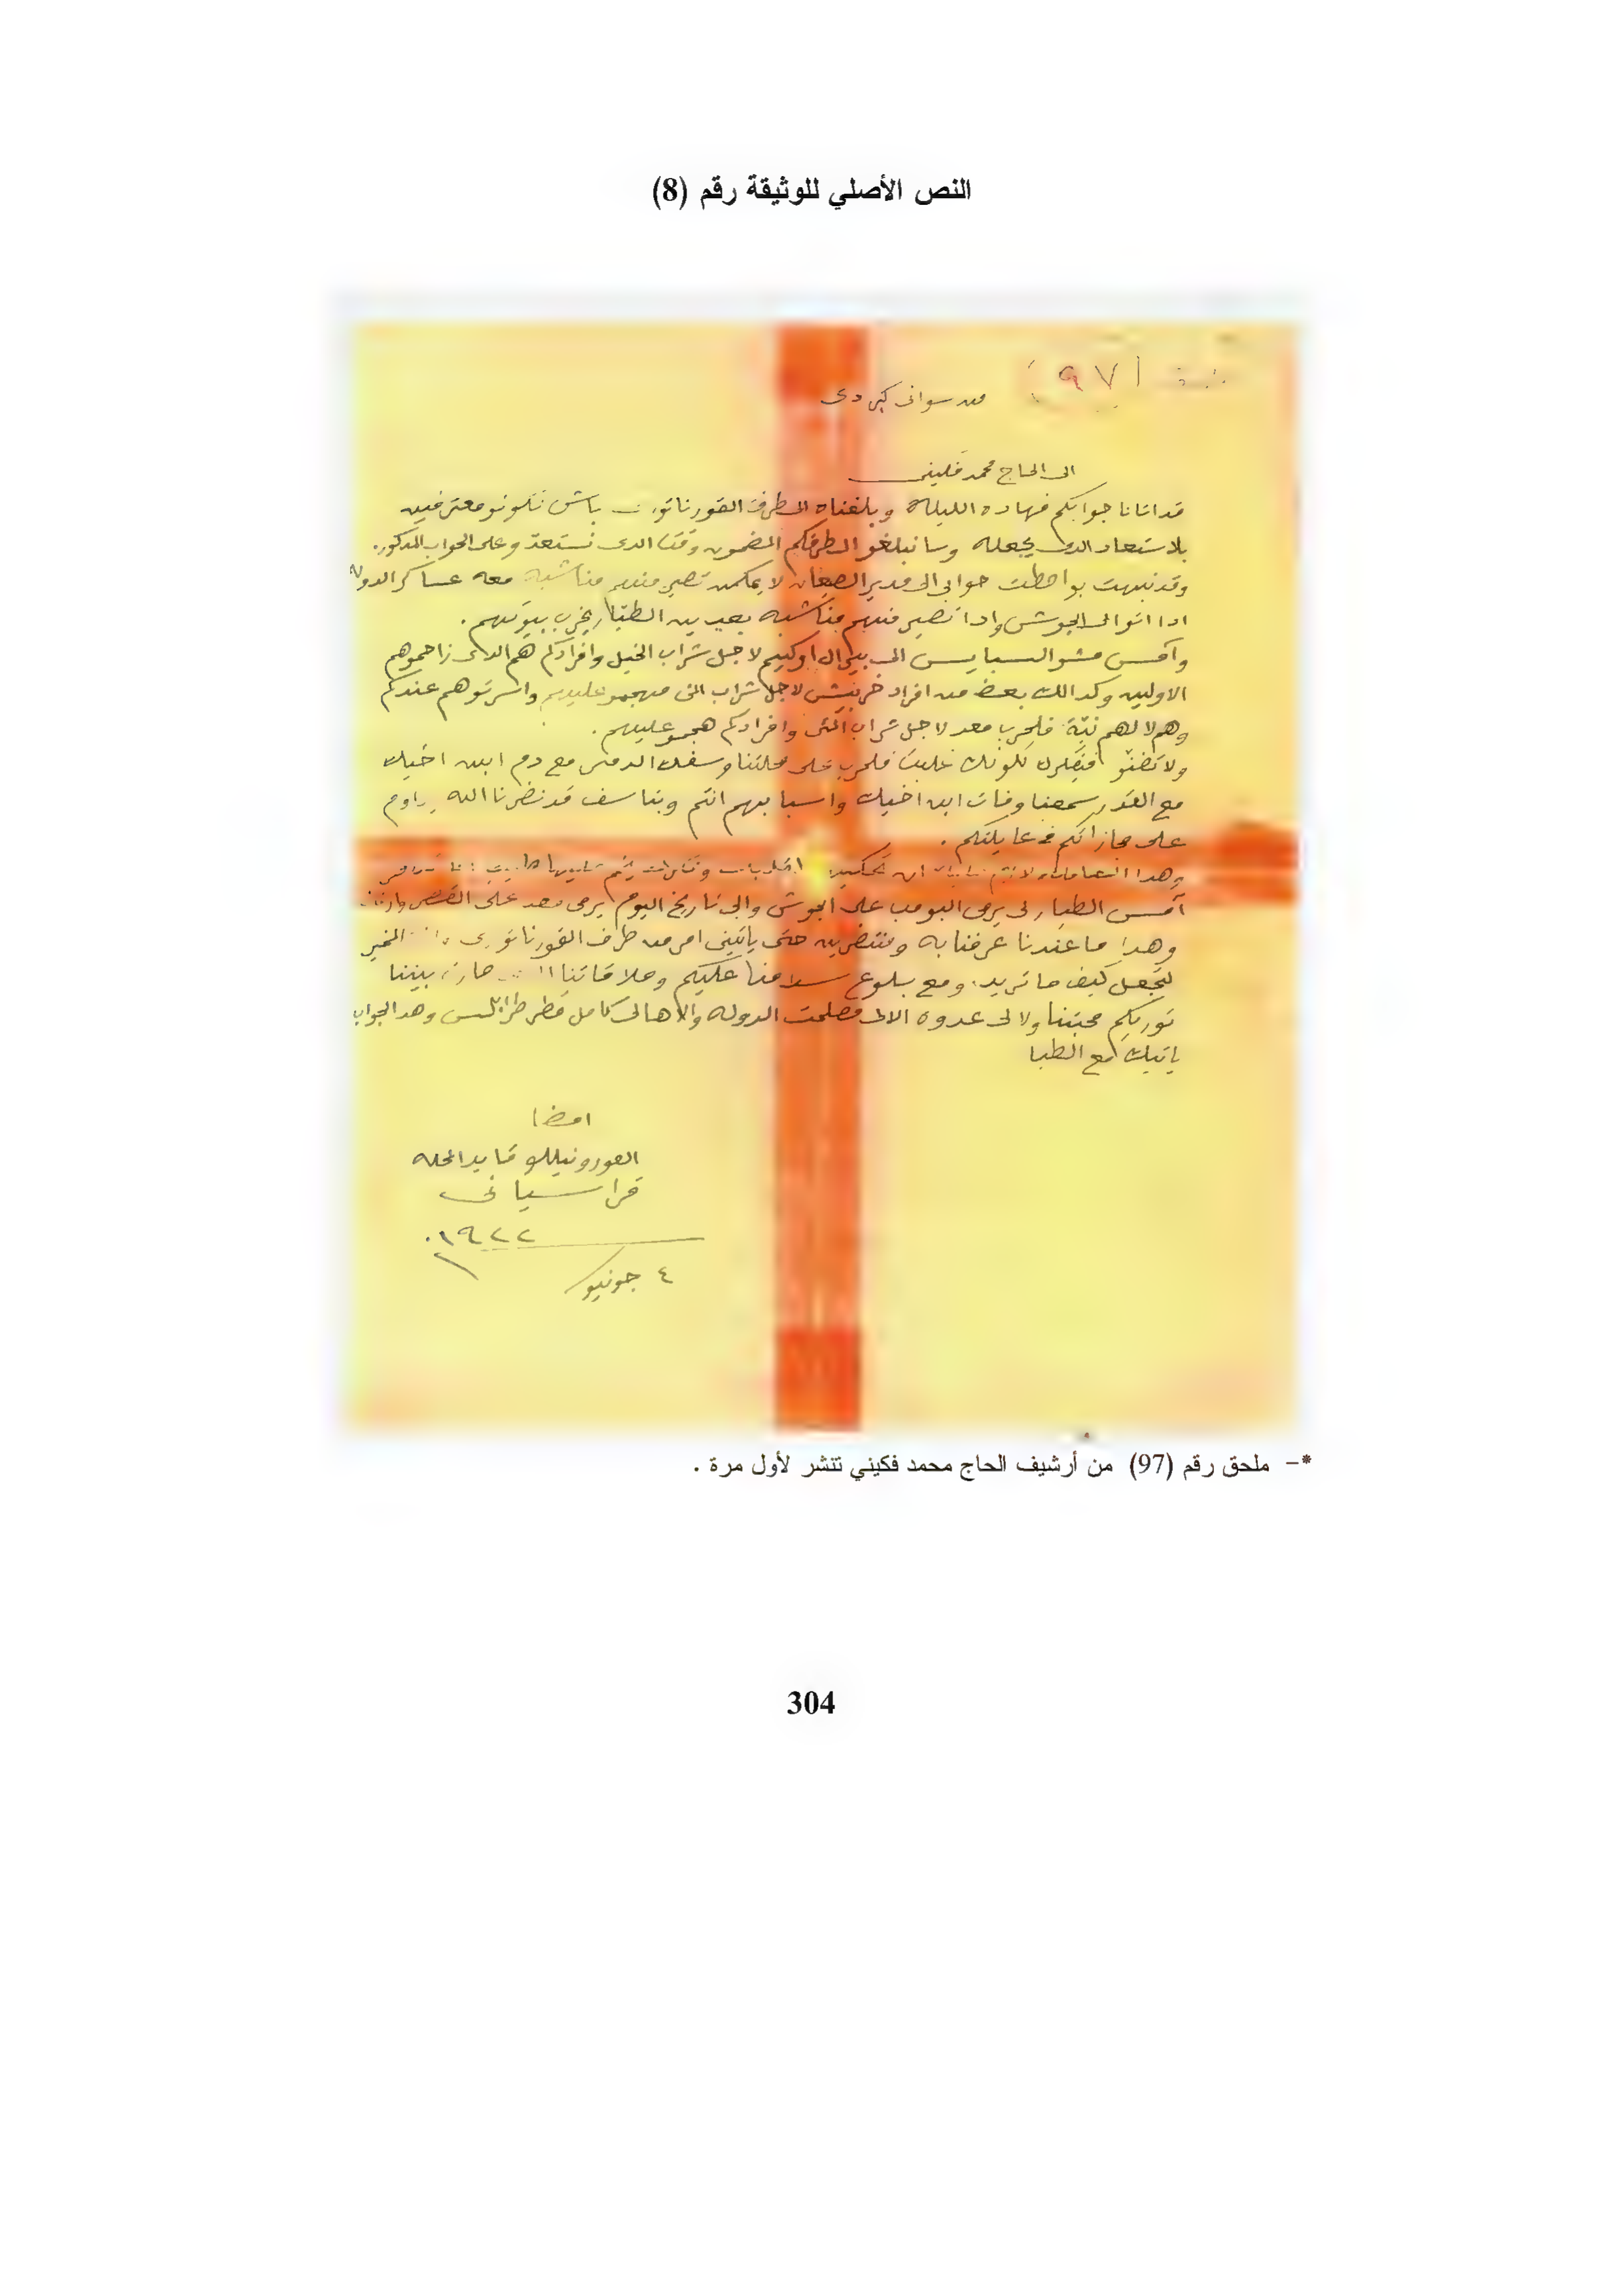 النص الأصلي للوثيقة رقم (8)
(٩٧)
من سوانى كردى
الى الحاج محمد فكينى
قد اتانا جوابكم فهاده الليلة وبلغناه الى طرف القورناتور باش تكونو معترفين
بلاستعاد الدى يجعله وسانبلغو الى طرفكم المضمون وقتا الدى نستعد وعلى الجواب المدكور.
وقد نبهت بواصطت جوابى الى مدير الصيعان لا يمكمن تصير منهم مناشبه معه عساكر الدوله
ادا اتو الى الجوش وادا تصير منهم مناشبه بعدين الطيار يخرب بيوتهم.
وآمس مشو السبايس الى بير ال اوكيم لاجل شراب الخيل وافرادكم هم الدى زاحموهم
الاولين وكدالك بعض من افراد خربيش لاجل شراب المى منهجمو عليهم واسرتوهم عندكم
وهم لا لهم نيّة فلحرب معد لاجل شراب المى وافرادكم هجمو عليهم.
ولا تضنّو فيفكرك تكونك غلبت فلحرب على محلتنا وسفك الدم مع دم ابن اخيك
مع القدر سمعنا وفات ابن اخيك واسبابهم انتم وبتاسف قد نضرنا الله يراوم
على مجازاتكم فى عايلتكم.
وهدا التعامل
آمس الطيار لى يرمى البومب على الجوش والى تاريخ اليوم يرمى معد على القصر
وهدا ما عندنا عرفنا به ومنتضرين حتى ياتينى امر من طرف القورناتورى الخير
لتجعل كيف ما تريد. ومع بلوع سلامنا عليكم وملاقاتنا صارت بيننا
توريكم محبتنا ولا لى عدوه الالى مصلحت الدوله والاهالى كامل قطر طرابلس وهدا الجواب
ياتيك مع الطيا
امضا
القورونيللو قايد المحله
قراسيانى
١٩٢٢
٤ جونيو
*- ملحق رقم (97) من أرشيف الحاج محمد فكيني تنشر لأول مرة .
304